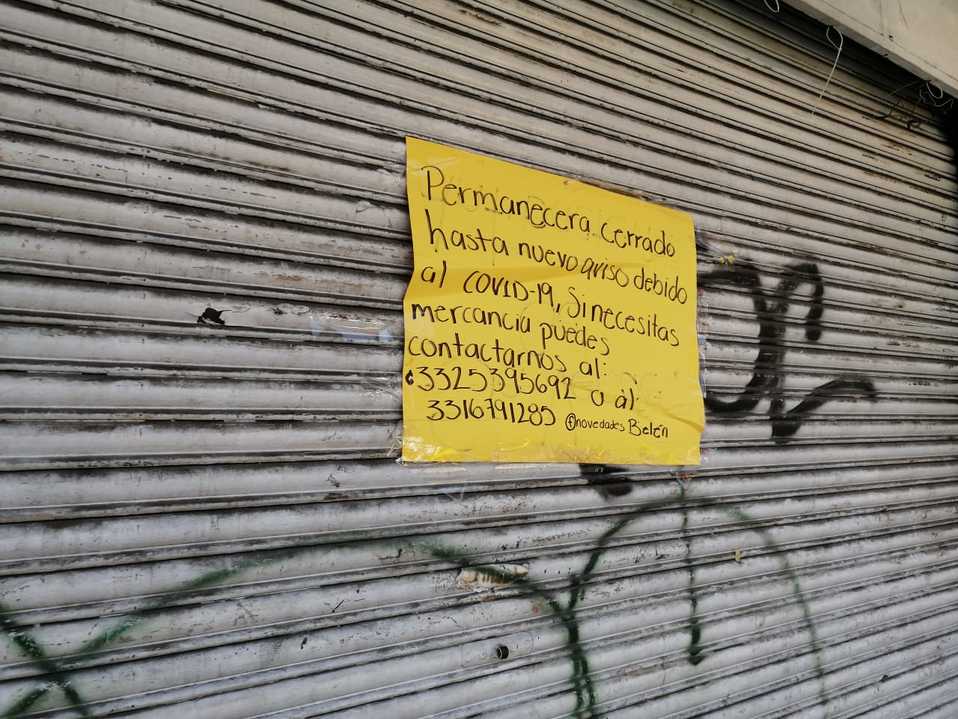 Permanecera cerrado
hasta nuevo aviso debido
al COVID-19, Si necesitas
mercancia puedes
contactarnos al:
3325395692 o al:
3316791285 novedades Belén